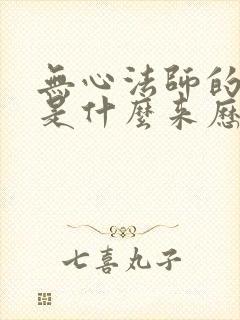 無心法師的
是什麼来歷
七喜丸子